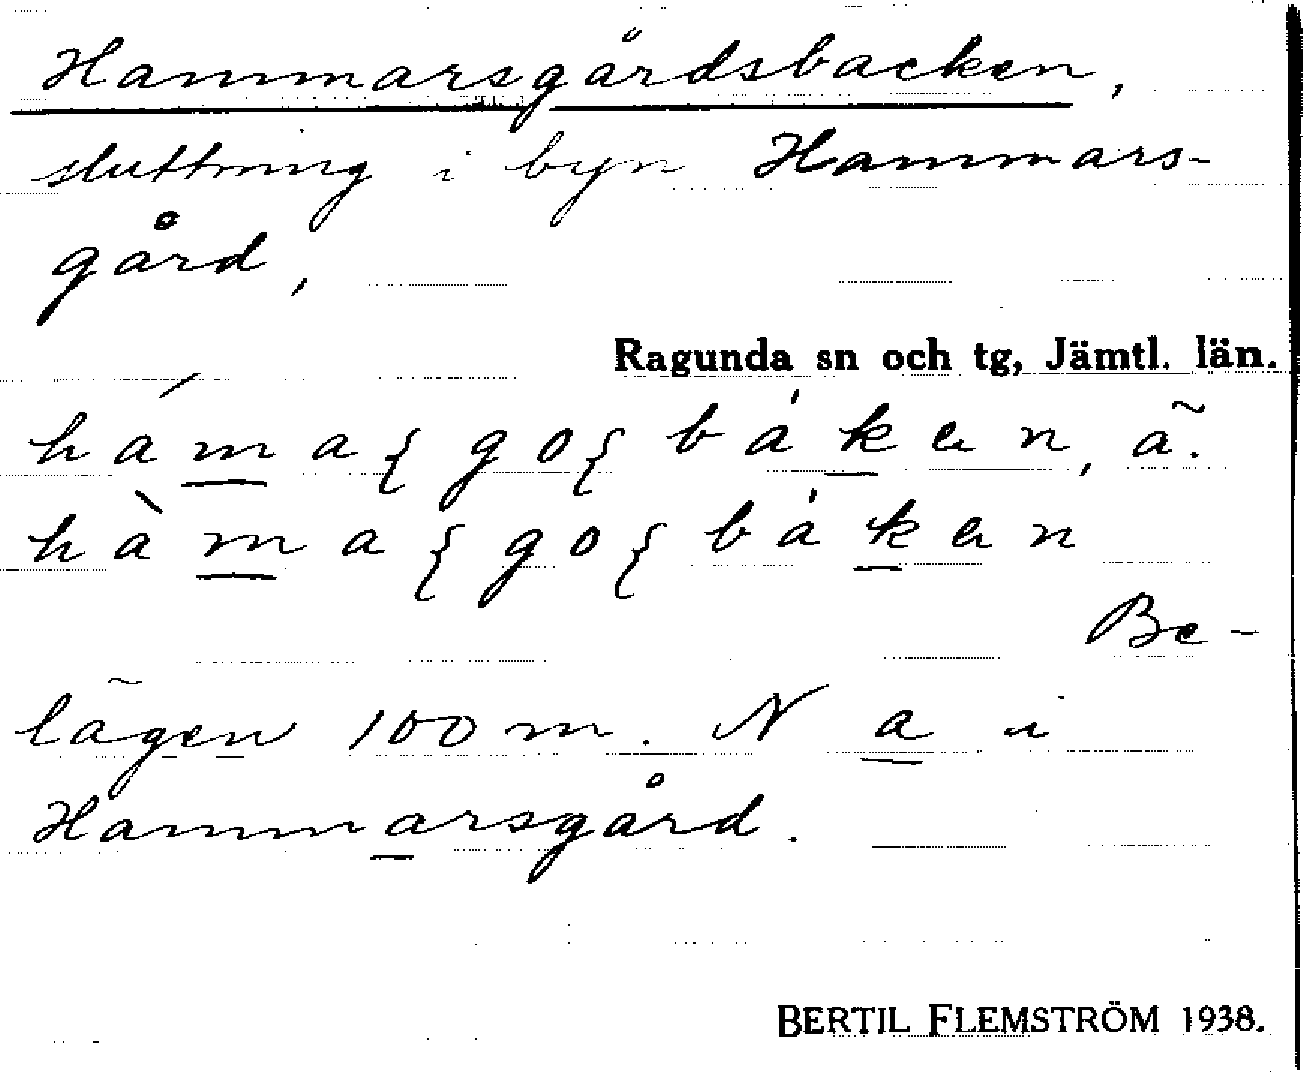 Hammarsgårdsbacken,
sluttning i byn Hammars-
gård,
Ragunda sn och tg, Jämtl. län.
Be-
lägen 100 m. N a i
Hammarsgård.
BERTIL FLEMSTRÖM 1938.